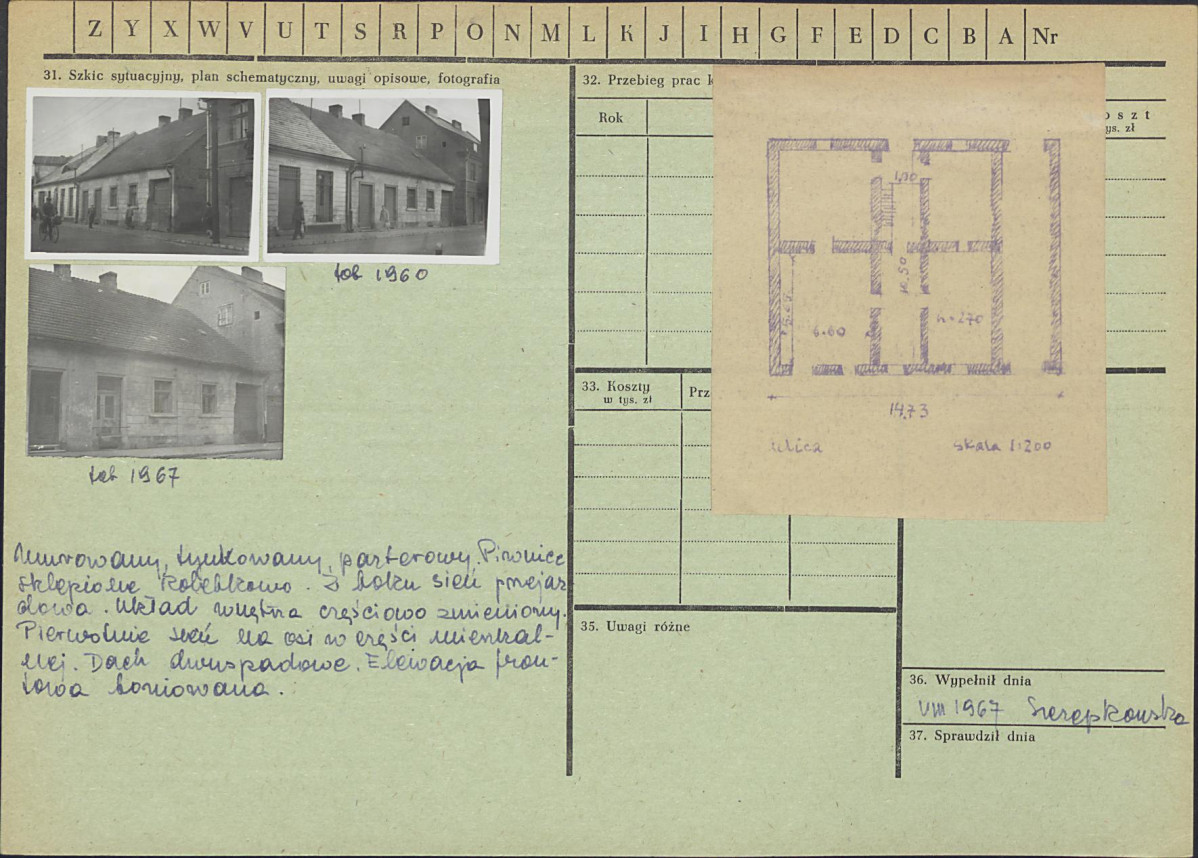 Z Y X W V U T S R P O N M L K J I H G F E D C B A Nr
31. Szkic sytuacyjny, plan schematyczny, uwagi opisowe, fotografia
fot 1960
fot 1967
Murowany, tynkowany, parterowy. Piwnice
sklepione kolebkowo. Z boku sień przejaz
dowa. Układ wnętrza częściowo zmieniony.
Pierwotnie sień na osi w części mieszkal-
nej. Dach dwuspadowe. Elewacja fron-
towa boniowana.
32. Przebieg prac k
Rok
oszt
ys. zł
1,70
h=270
14,73
ulica
skala 1:200
33. Koszty
w tys. zł
Prz
35. Uwagi różne
36. Wypełnił dnia
VIII 1967
37. Sprawdził dnia